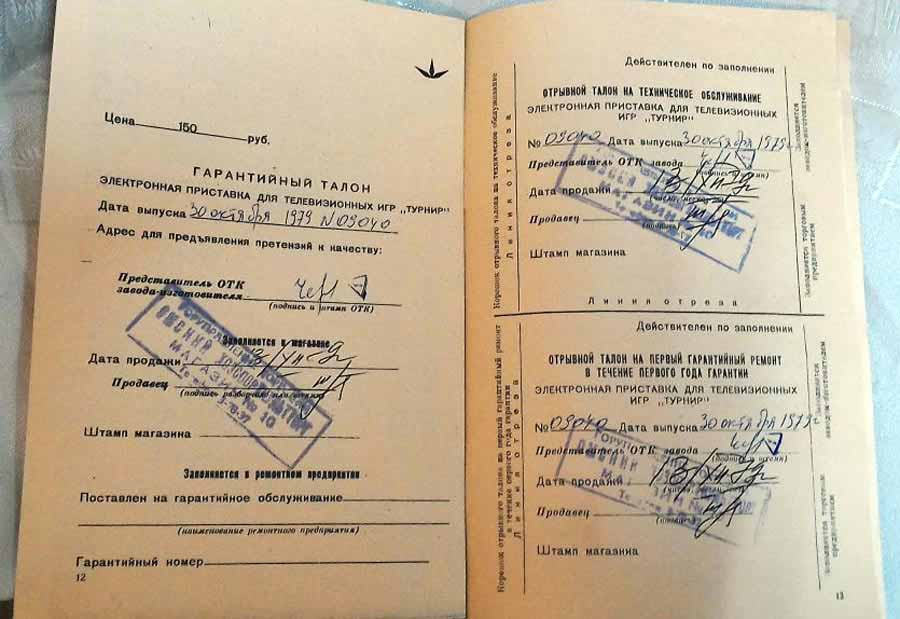 Цена 150 руб.
ГАРАНТИЙНЫЙ ТАЛОН
ЭЛЕКТРОННАЯ ПРИСТАВКА ДЛЯ ТЕЛЕВИЗИОННЫХ ИГР „ТУРНИР"
Дата выпуска 30 октября 1979 N 09040
Адрес для предъявления претензий к качеству:
Представитель ОТК
завода-изготовителя
(подпись и штамп ОТК)
Заполняется в магазине
Дата продажи
Продавец
(подпись разборчиво или штамп)
ОМСКИЙ
МАГАЗИН № 10
Штамп магазина
Заполняется в ремонтном предприятии
Поставлен на гарантийное обслуживание
(наименование ремонтного предприятия)
Гарантийный номер
12
Корешок отрывного талона на техническое обслуживание
Линия отреза
Действителен по заполнении
ОТРЫВНОЙ ТАЛОН НА ТЕХНИЧЕСКОЕ ОБСЛУЖИВАНИЕ
ЭЛЕКТРОННАЯ ПРИСТАВКА ДЛЯ ТЕЛЕВИЗИОННЫХ
ИГР „ТУРНИР"
№ 09040 Дата выпуска 30 октября 1979
Представитель ОТК завода
Дата продажи
Продавец
(подпись)
Штамп магазина
Линия отреза
Заполняется заводом-изготовителем
Заполняется торговым предприятием
Корешок отрывного талона на первый гарантийный ремонт
в течение первого года гарантии
Линия отреза
Действителен по заполнении
ОТРЫВНОЙ ТАЛОН НА ПЕРВЫЙ ГАРАНТИЙНЫЙ РЕМОНТ
В ТЕЧЕНИЕ ПЕРВОГО ГОДА ГАРАНТИИ
ЭЛЕКТРОННАЯ ПРИСТАВКА ДЛЯ ТЕЛЕВИЗИОННЫХ
ИГР „ТУРНИР"
№ 09040 Дата выпуска 30 октября 1979
Представитель ОТК завода
(подпись и штамп)
Дата продажи
Продавец
ОМСКИЙ
Штамп магазина
Заполняется заводом-изготовителем
Заполняется торговым предприятием
13